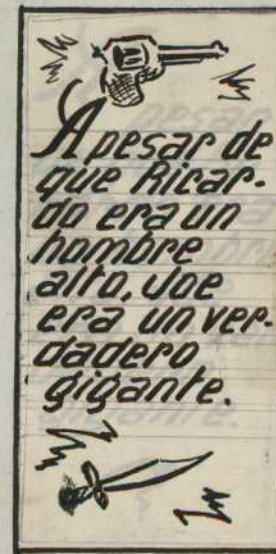 A pesar de
que Ricar-
do era un
hombre
alto, Joe
era un ver-
dadero
gigante.